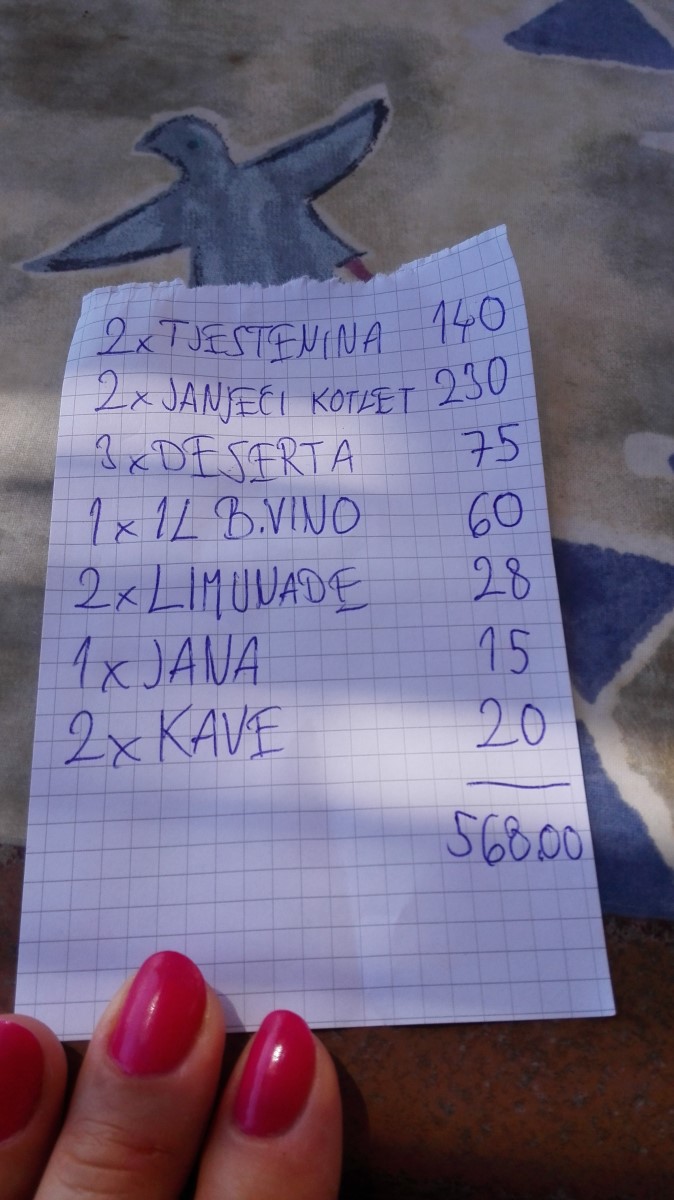 2x TJESTENINA 140
2x JANJEĆI KOTLET 230
3x DESERTA 75
1x 1L B.VINO 60
2x LIMUNADE 28
1x JANA 15
2x KAVE 20
568.00